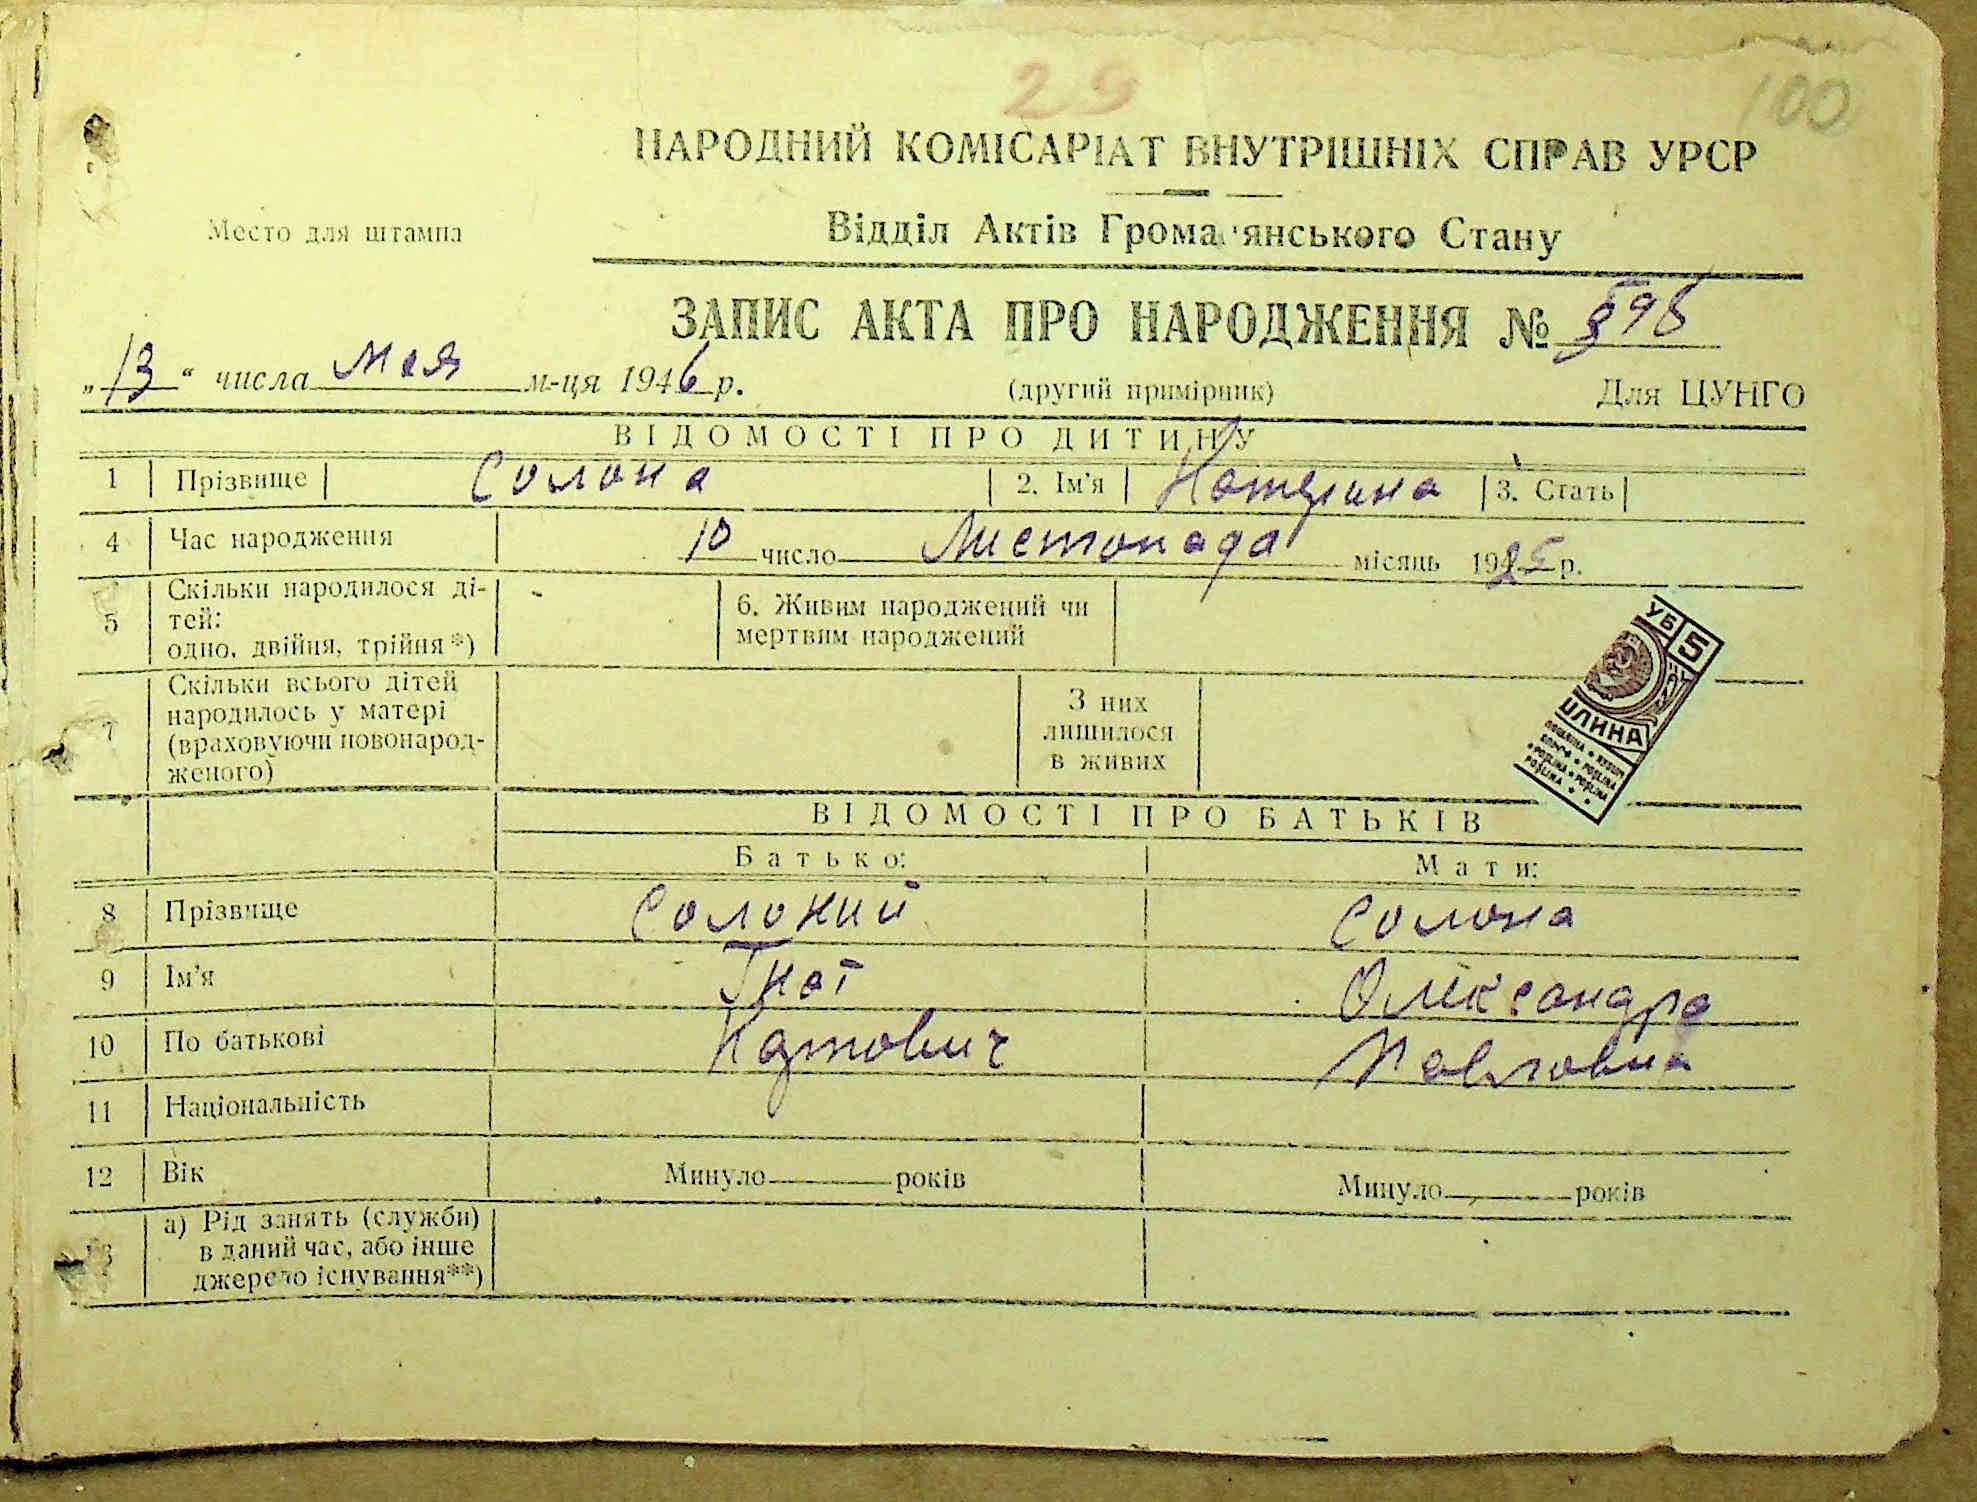 29
100
НАРОДНИЙ КОМІСАРІАТ ВНУТРІШНІХ СПРАВ УРСР
Место для штампа
Відділ Актів Громадянського Стану
ЗАПИС АКТА ПРО НАРОДЖЕННЯ №
„13“ числа мая м-ця 1946 р.
(другий примірник)
Для ЦУНГО
ВІДОМОСТІ ПРО ДИТИНУ
1 Прізвище Солона 2. Ім'я Катерина 3. Стать
4 Час народження 10 число Листопада місяць 1925 р.
5 Скільки народилося ді-
тей:
одно, двійня, трійня*)
6. Живим народжений чи
мертвим народжений
7 Скільки всього дітей
народилось у матері
(враховуючи новонарод-
женого)
З них
лишилося
в живих
УБ 5
ШЛИНА
POŠLINA
ВІДОМОСТІ ПРО БАТЬКІВ
Батько: Мати:
8 Прізвище Солоний Солона
9 Ім'я Гнат Олександра
10 По батькові Павловна
11 Національність
12 Вік Минуло років Минуло років
13 а) Рід занять (служби)
в даний час, або інше
джерело існування**)